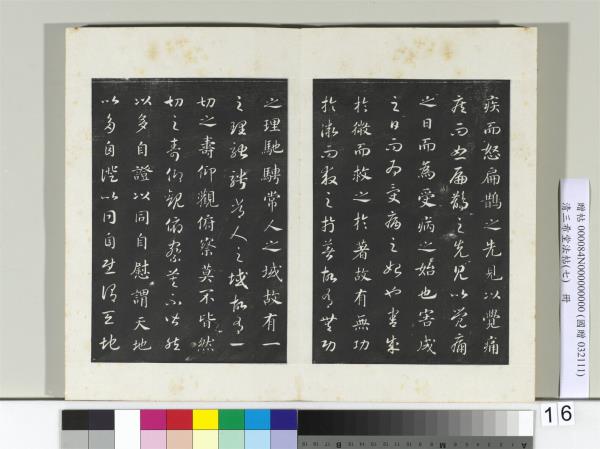 疾而怒扁鵲之先見以覺痛
疾而怒扁鵲之先見以覺痛
之日而為受病之始也害成
之日而為受病之始也害成
於微而救之於著故有無功
於微而救之於著故有無功
之理馳騁常人之域故有一
之理馳騁常人之域故有一
切之壽仰觀俯察莫不皆然
切之壽仰觀俯察莫不皆然
以多自證以同自慰謂天地
以多自證以同自慰謂天地
贈帖 000084N000000000 (國贈 032111)
清三希堂法帖(七) 冊
16